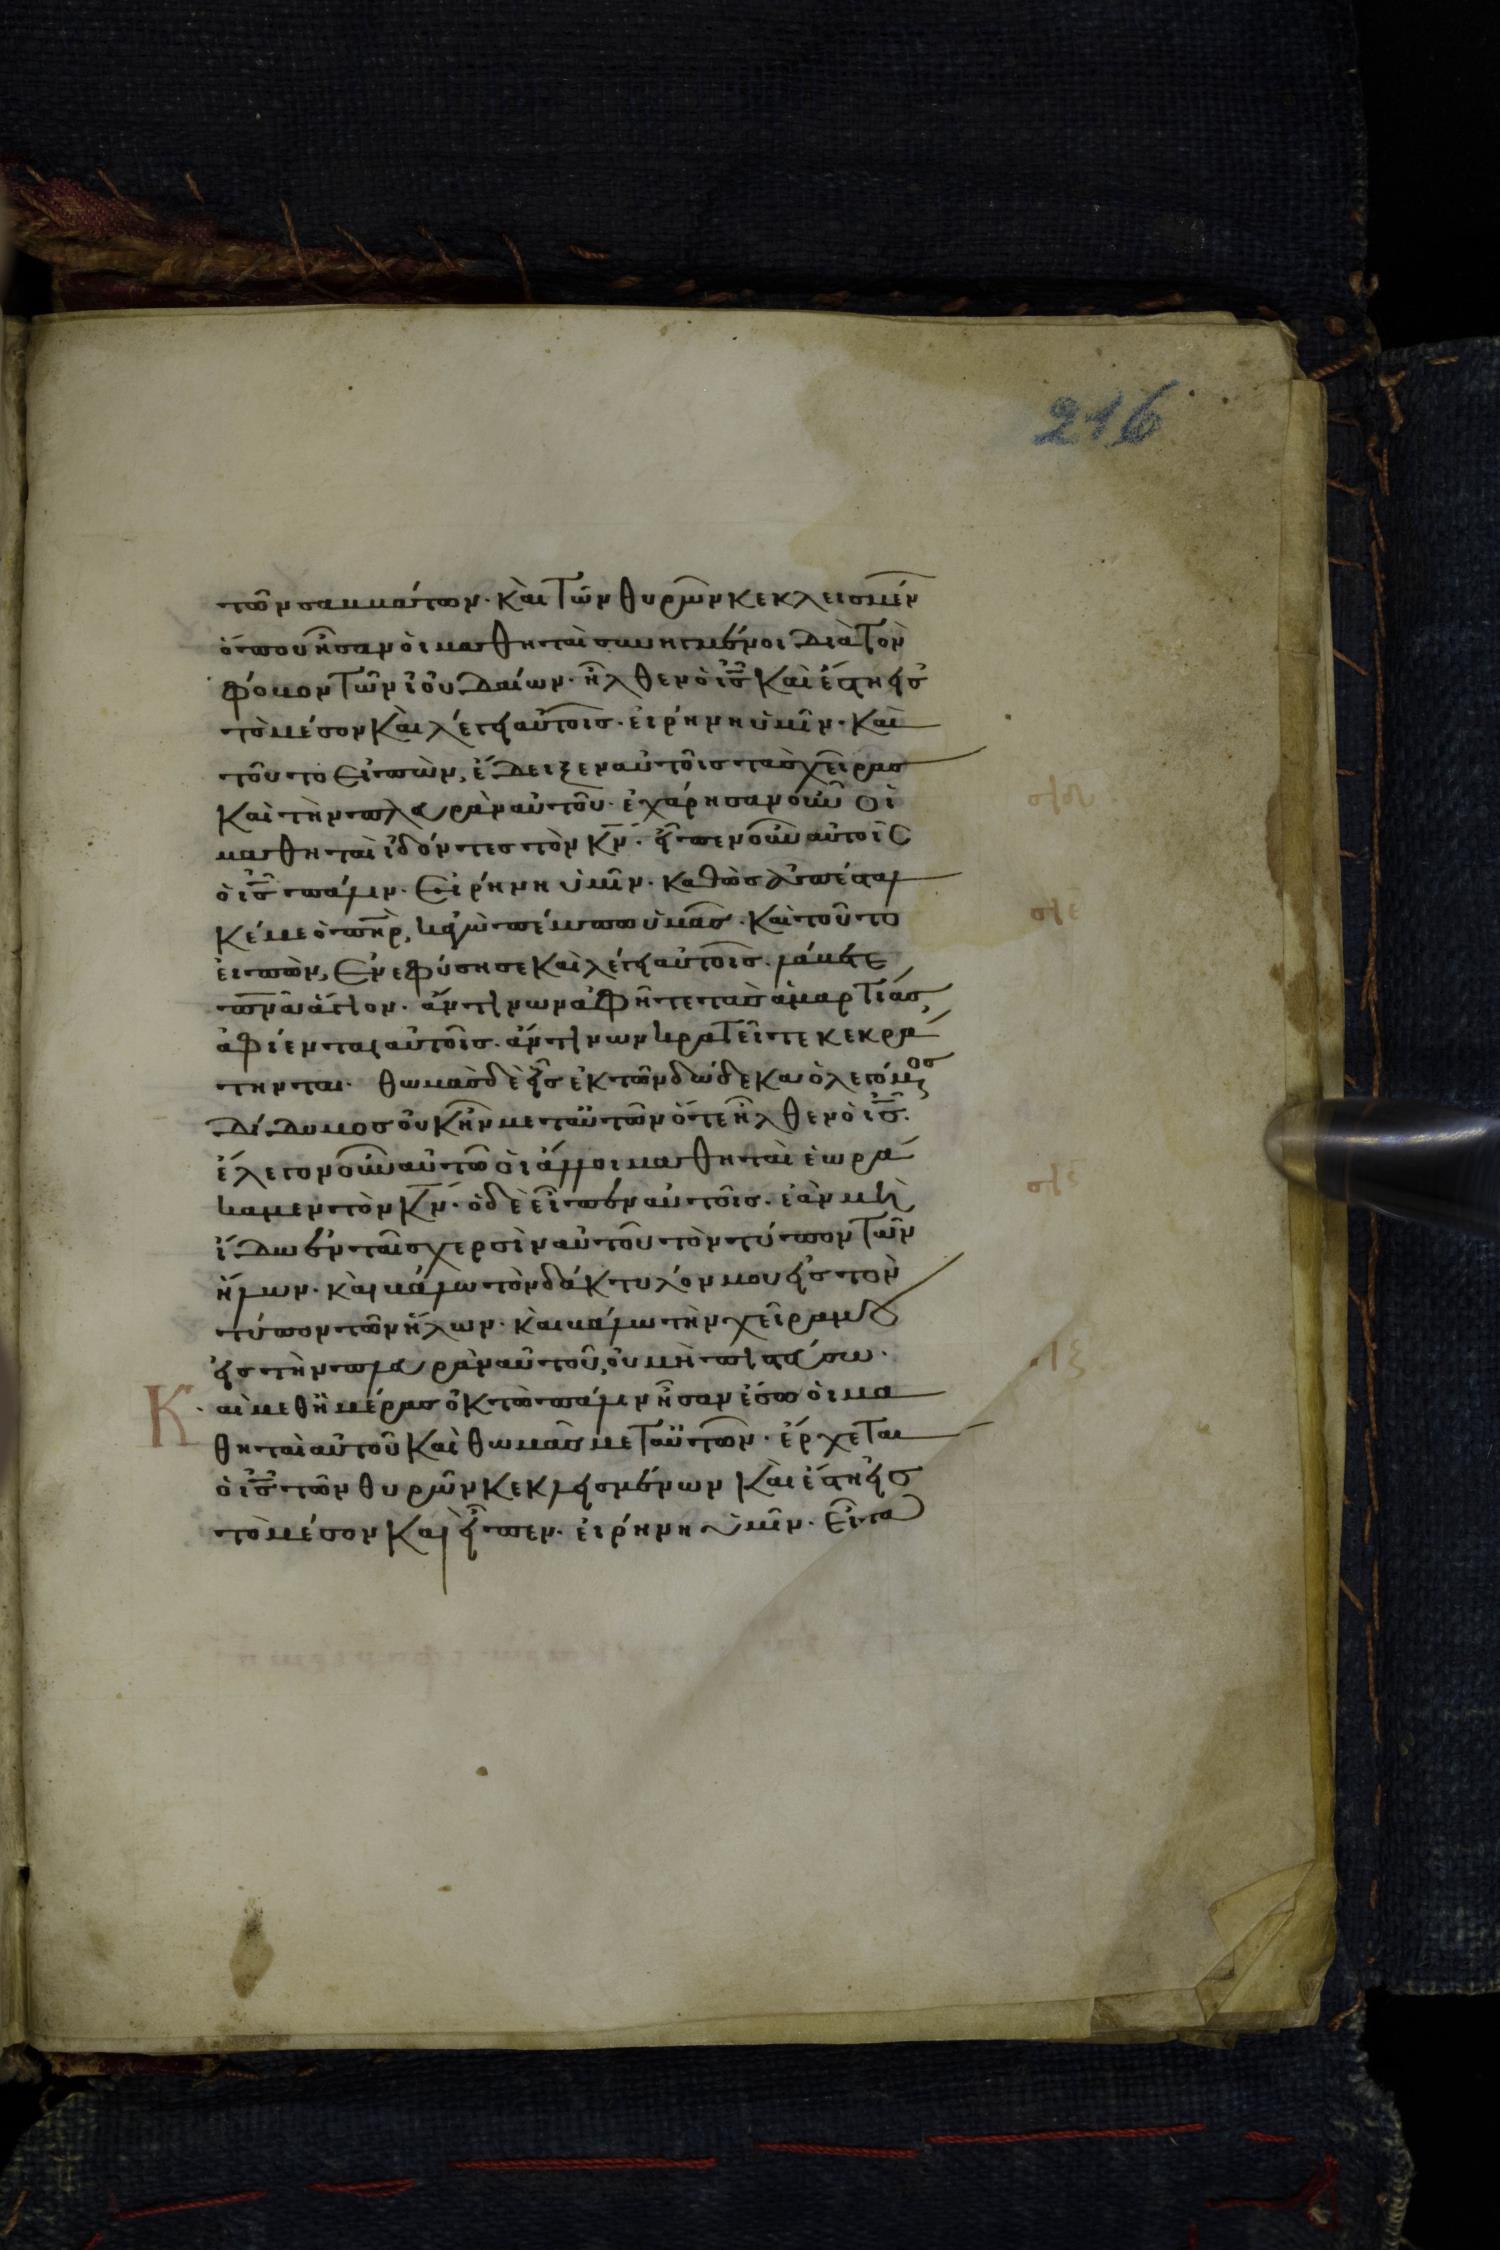 216
τῶν σαββάτων· καὶ τῶν θυρῶν κεκλεισμέν
ὅπου ἦσαν οἱ μαθηταὶ συνηγμένοι διὰ τὸν
φόβον τῶν ἰουδαίων· ἦλθεν ὁ ι̅ς̅ καὶ ἔστη εἰς
τὸ μέσον καὶ λέγει αὐτοῖς· εἰρήνη ὑμῖν· καὶ
τοῦτο εἰπὼν, ἔδειξεν αὐτοῖς τὰς χεῖρας
καὶ τὴν πλευρὰν αὐτοῦ· ἐχάρησαν οὖν οἱ
μαθηταὶ ἰδόντες τὸν κ̅ν̅· εἶπεν οὖν αὐτοῖς
ὁ ι̅ς̅ πάλιν· εἰρήνη ὑμῖν· καθὼς ἀπέσταλ
κέ με ὁ π̅η̅ρ̅, κἀγὼ πέμπω ὑμᾶς· καὶ τοῦτο
εἰπὼν, ἐνεφύσησε καὶ λέγει αὐτοῖς· λάβετε
π̅ν̅α̅ ἅγιον· ἄν τινων ἀφῆτε τὰς ἁμαρτίας,
ἀφίενται αὐτοῖς· ἄν τινων κρατεῖτε κεκρά
τηνται· θωμᾶς δὲ εἷς ἐκ τῶν δώδεκα ὁ λεγόμενος
δίδυμος οὐκ ἦν μετ αὐτῶν ὅτε ἦλθεν ὁ ι̅ς̅·
ἔλεγον οὖν αὐτῶ οἱ ἄλλοι μαθηταὶ ἑωρά
καμεν τὸν κ̅ν̅· ὁ δὲ εἶπεν αὐτοῖς· ἐὰν μὴ
ἴδω ἐν ταῖς χερσὶν αὐτοῦ τὸν τύπον τῶν
ἥλων· καὶ βάλω τὸν δάκτυλόν μου εἰς τὸν
τύπον τῶν ἥλων· καὶ βάλω τὴν χεῖρα μου
εἰς τὴν πλευρὰν αὐτοῦ, οὐ μὴ πιστεύσω·
Καὶ μεθ ἡμέρας ὀκτὼ πάλιν ἦσαν ἔσω οἱ μα
θηταὶ αὐτοῦ καὶ θωμᾶς μετ αὐτῶν· ἔρχεται
ὁ ι̅ς̅ τῶν θυρῶν κεκλεισμένων καὶ ἔστη εἰς
τὸ μέσον καὶ εἶπεν· εἰρήνη ὑμῖν· εἶτα